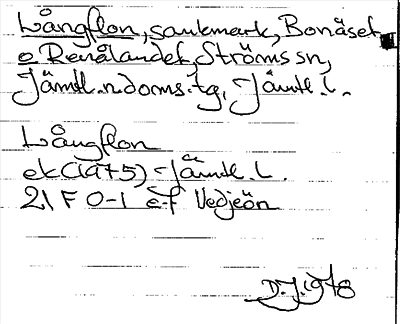 Långflon, sankmark, Bonäset
o Renålandet, Ströms sn,
Jämtl. n. doms. tg, Jämtl. l.
Långflon
ek (1975) Jämtl. l.
21 F 0-1 e-f Vedjeön
D.J. 1978